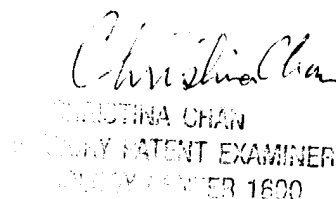 Christina Chan
CHRISTINA CHAN
PATENT EXAMINER
CENTER 1600